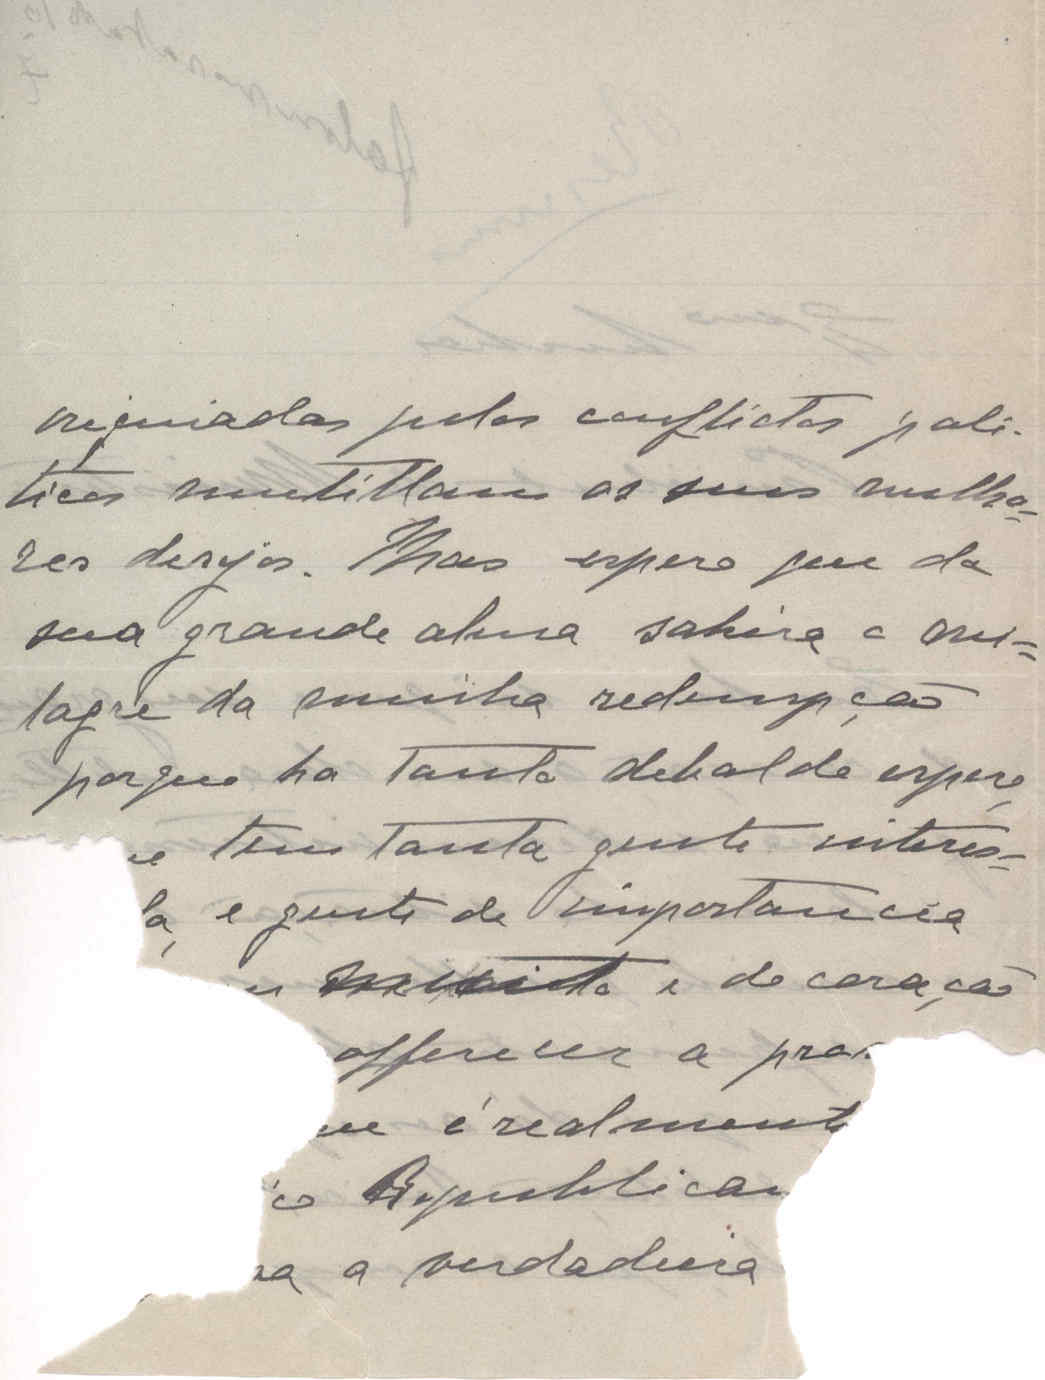 originadas pelos conflictos poli-
ticos mutillam os seus melho=
res desejos. Mas espero que da
sua grande alma sahirá o mi=
lagre da minha redempção
porque ha tanto debalde espero,
ue tem tanta gente interes=
da, e gente de importancia
e do coração
offerecer a pro
ue é realment
ico Republican
ra a verdadeira